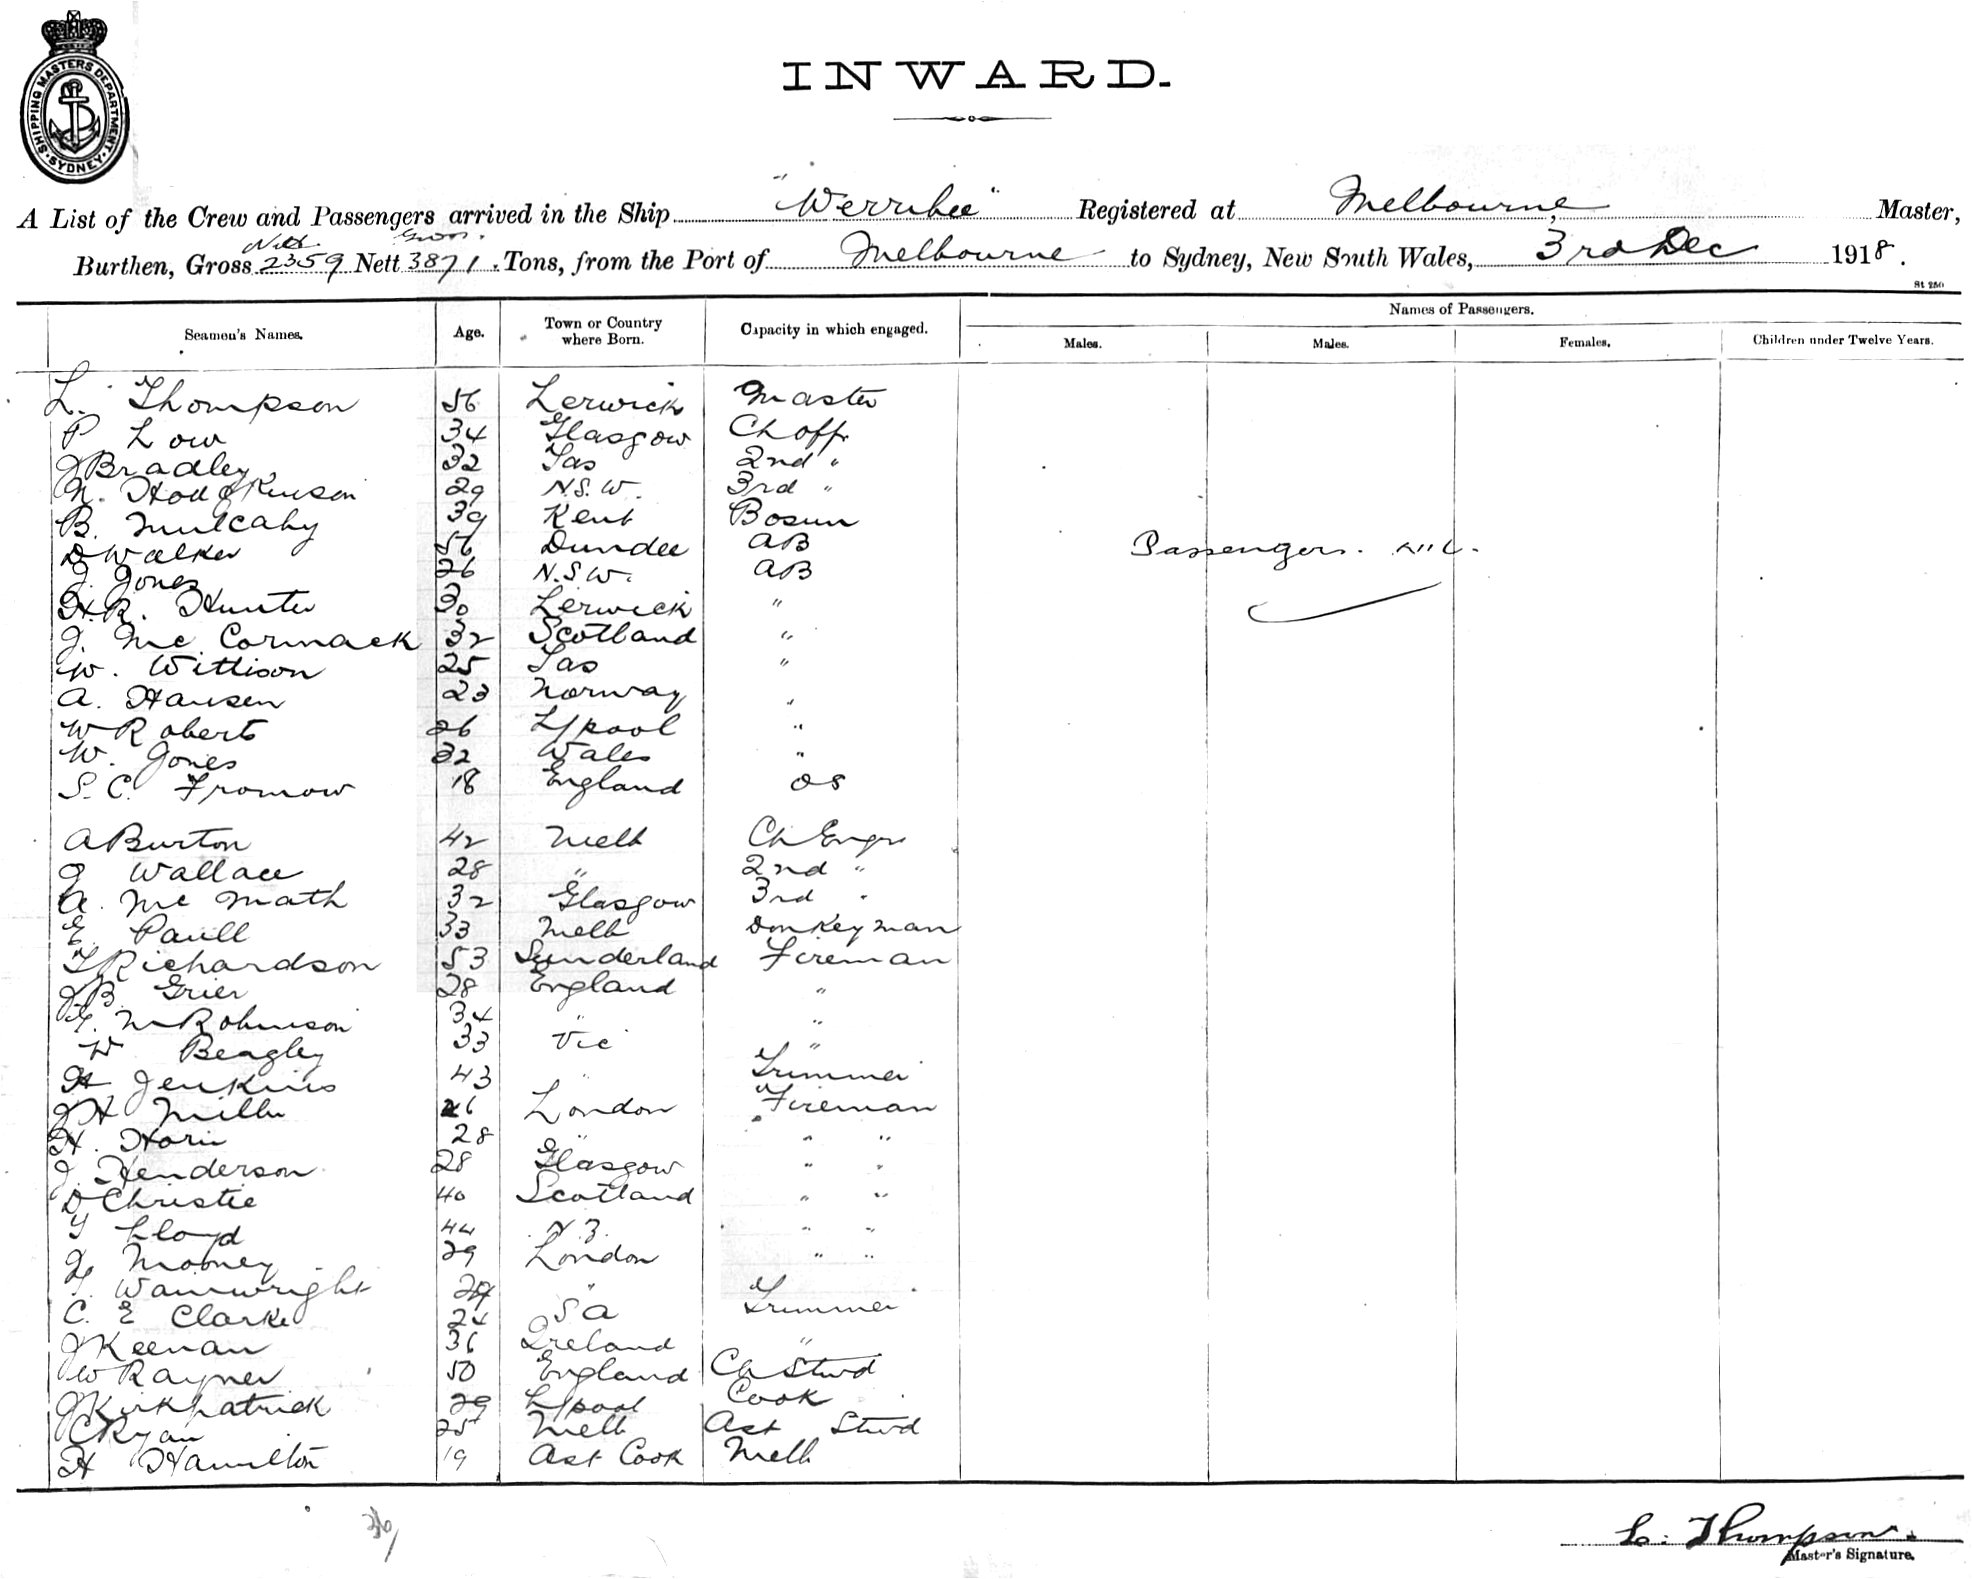 SHIPPING MASTERS DEPARTMENT
SYDNEY
INWARD.
A List of the Crew and Passengers arrived in the Ship "Werribee" Registered at Melbourne, Master,
Nett. Gross.
Burthen, Gross 2359 Nett 3871. Tons, from the Port of Melbourne to Sydney, New South Wales, 3rd Dec 1918.
St 250
Seamen's Names. Age. Town or Country where Born. Capacity in which engaged. Names of Passengers.
Males. Males. Females. Children under Twelve Years.
L. Thompson 56 Lerwick Master
P Low 34 Glasgow Ch Offr
J Bradley 32 Tas 2nd "
N. Hodgkinson 29 N.S.W. 3rd "
B. Mulcahy 39 Kent Bosun
D Walker 56 Dundee AB
Passengers. Nil.
J. Jones 26 N.S.W. AB
H.R. Hunter 30 Lerwick "
J. Mc Cormack 32 Scotland "
W. Wittison 25 Tas "
A. Hansen 23 Norway "
W Roberts 26 L/pool "
W. Jones 32 Wales "
S. C. Fromow 18 England OS
A Burton 42 Melb Ch Engr
J Wallace 28 " 2nd "
A. Mc Math 32 Glasgow 3rd "
E. Paull 33 Melb Donkeyman
T Richardson 53 Sunderland Fireman
J.B. Grier 28 England "
Robinson 34 " "
W Beagley 33 Vic "
H Jenkins 43 " Trimmer
J H Miller 26 London Fireman
H. Horn 28 " " "
J. Henderson 28 Glasgow " "
D Christie 40 Scotland " "
T Lloyd 44 N.Z. " "
J. Mooney 29 London " "
T. Wainwright "
C. E Clarke 24 S A Trimmer
J Keenan 36 Ireland "
W Rayner 50 England Ch Stwd
J Kirkpatrick 29 L/pool Cook
C Ryan 25 Melb Ast Stwd
H Hamilton 19 Ast Cook Melb
36/
L. Thompson.
Master's Signature.